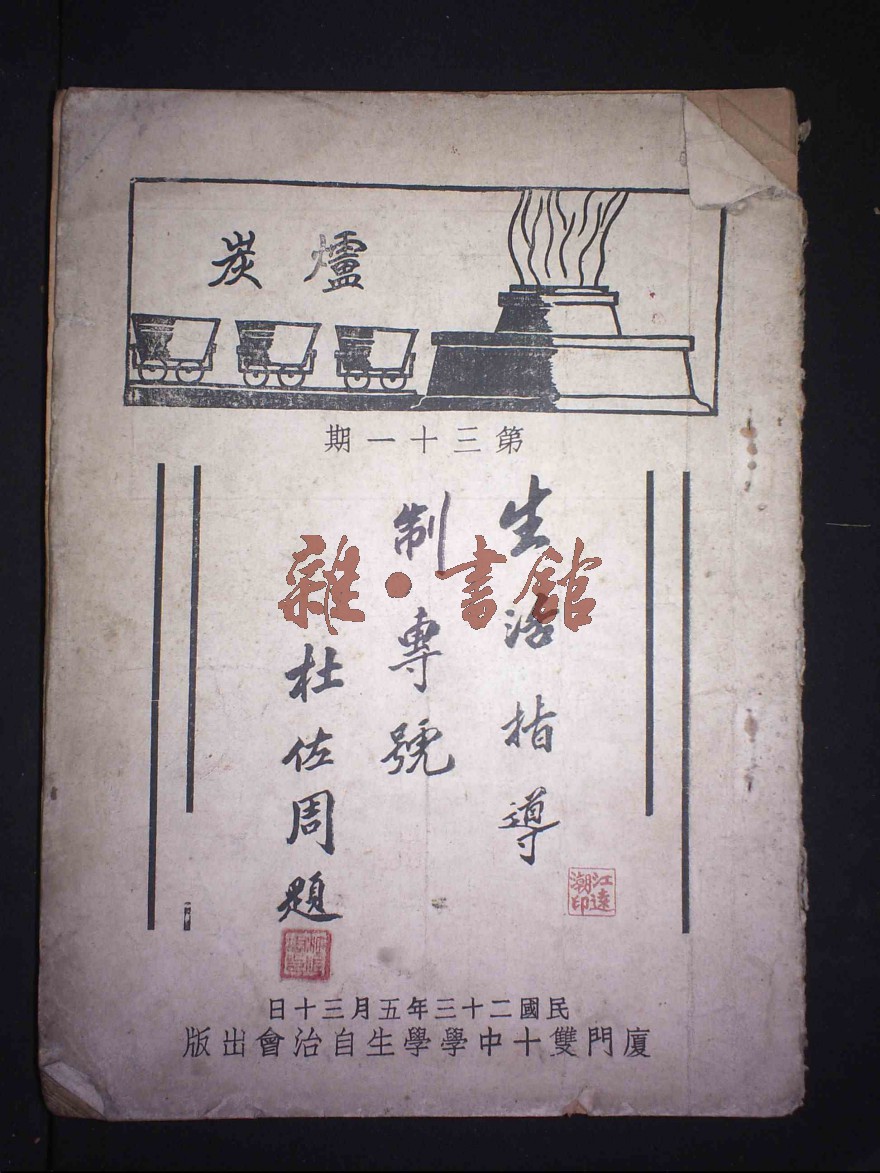 爐炭
第三十一期
生活指導
制專號
杜佐周題
江遠潮印
民國二十三年五月三十日
廈門雙十中學學生自治會出版
雜·書館